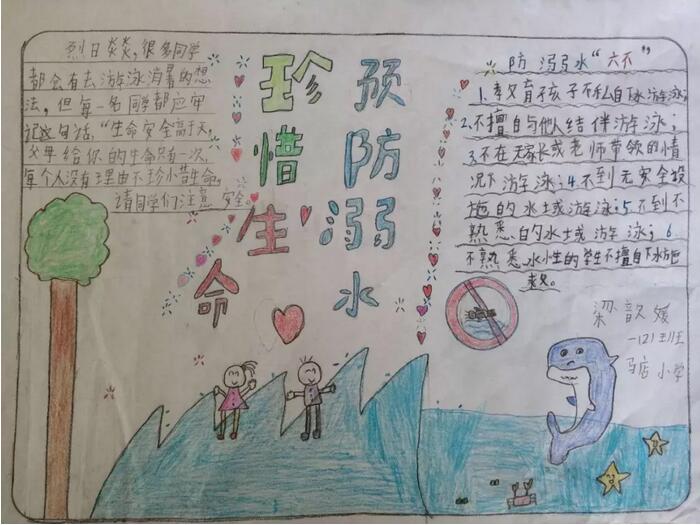 烈日炎炎,很多同学
都会有去游泳消暑的想
法,但每一名同学都应牢
记这句话,"生命安全高于天,
父母给你的生命只有一次,
每个人没有理由不珍小惜生命,
请同学们注意 安全。
珍惜生命
预防溺水
防 溺弱水"六不"
1.教育孩子不私自下水游泳;
2.不擅自与他人结伴游泳;
3.不在无家长或老师带领的情
况下游泳;4.不到无安全设
施的水域游泳;5.不到不
熟悉的水域游泳;6.
不熟悉水性的学生不擅自下水施
救。
梁歆媛
一(2)班
马店小学